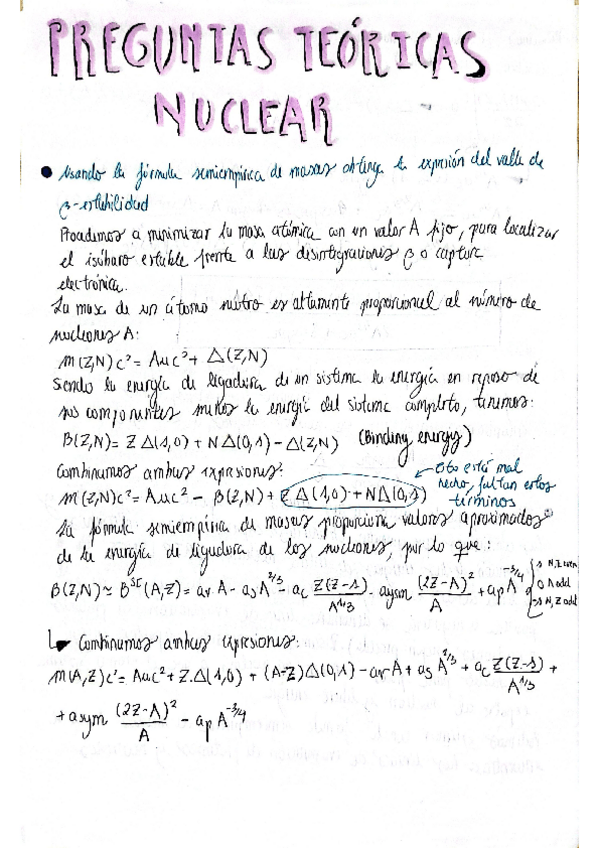 PREGUNTAS TEÓRICAS
NUCLEAR
• Usando la fórmula semiempírica de masas obtenga la expresión del valle de
β-estabilidad
Procedemos a minimizar la masa atómica con un valor A fijo, para localizar
el isóbaro estable frente a las desintegraciones β o captura
electrónica.
La masa de un átomo neutro es altamente proporcional al número de
nucleones A:
m(Z,N)c² = Auc² + Δ(Z,N)
Siendo la energía de ligadura de un sistema la energía en reposo de
sus componentes menos la energía del sistema completo, tenemos:
B(Z,N) = Z Δ(1,0) + N Δ(0,1) - Δ(Z,N) (Binding energy)
Combinamos ambas expresiones:
← Esto está mal
hecho, faltan estos
términos
m(Z,N)c² = Auc² - B(Z,N) + Z Δ(1,0) + N Δ(0,1)
La fórmula semiempírica de masas proporciona valores aproximados
de la energía de ligadura de los nucleones, por lo que:
B(Z,N) ≃ Bˢᴱ(A,Z) = av A - as A^2/3 - ac Z(Z-1)/A^1/3 - asym (2Z-A)²/A + ap A^-3/4 { 1 N,Z even
0 A odd
-1 N,Z odd
↳ Combinamos ambas expresiones:
m(A,Z)c² = Auc² + Z·Δ(1,0) + (A-Z)Δ(0,1) - av A + as A^2/3 + ac Z(Z-1)/A^1/3 +
+ asym (2Z-A)²/A - ap A^-3/4